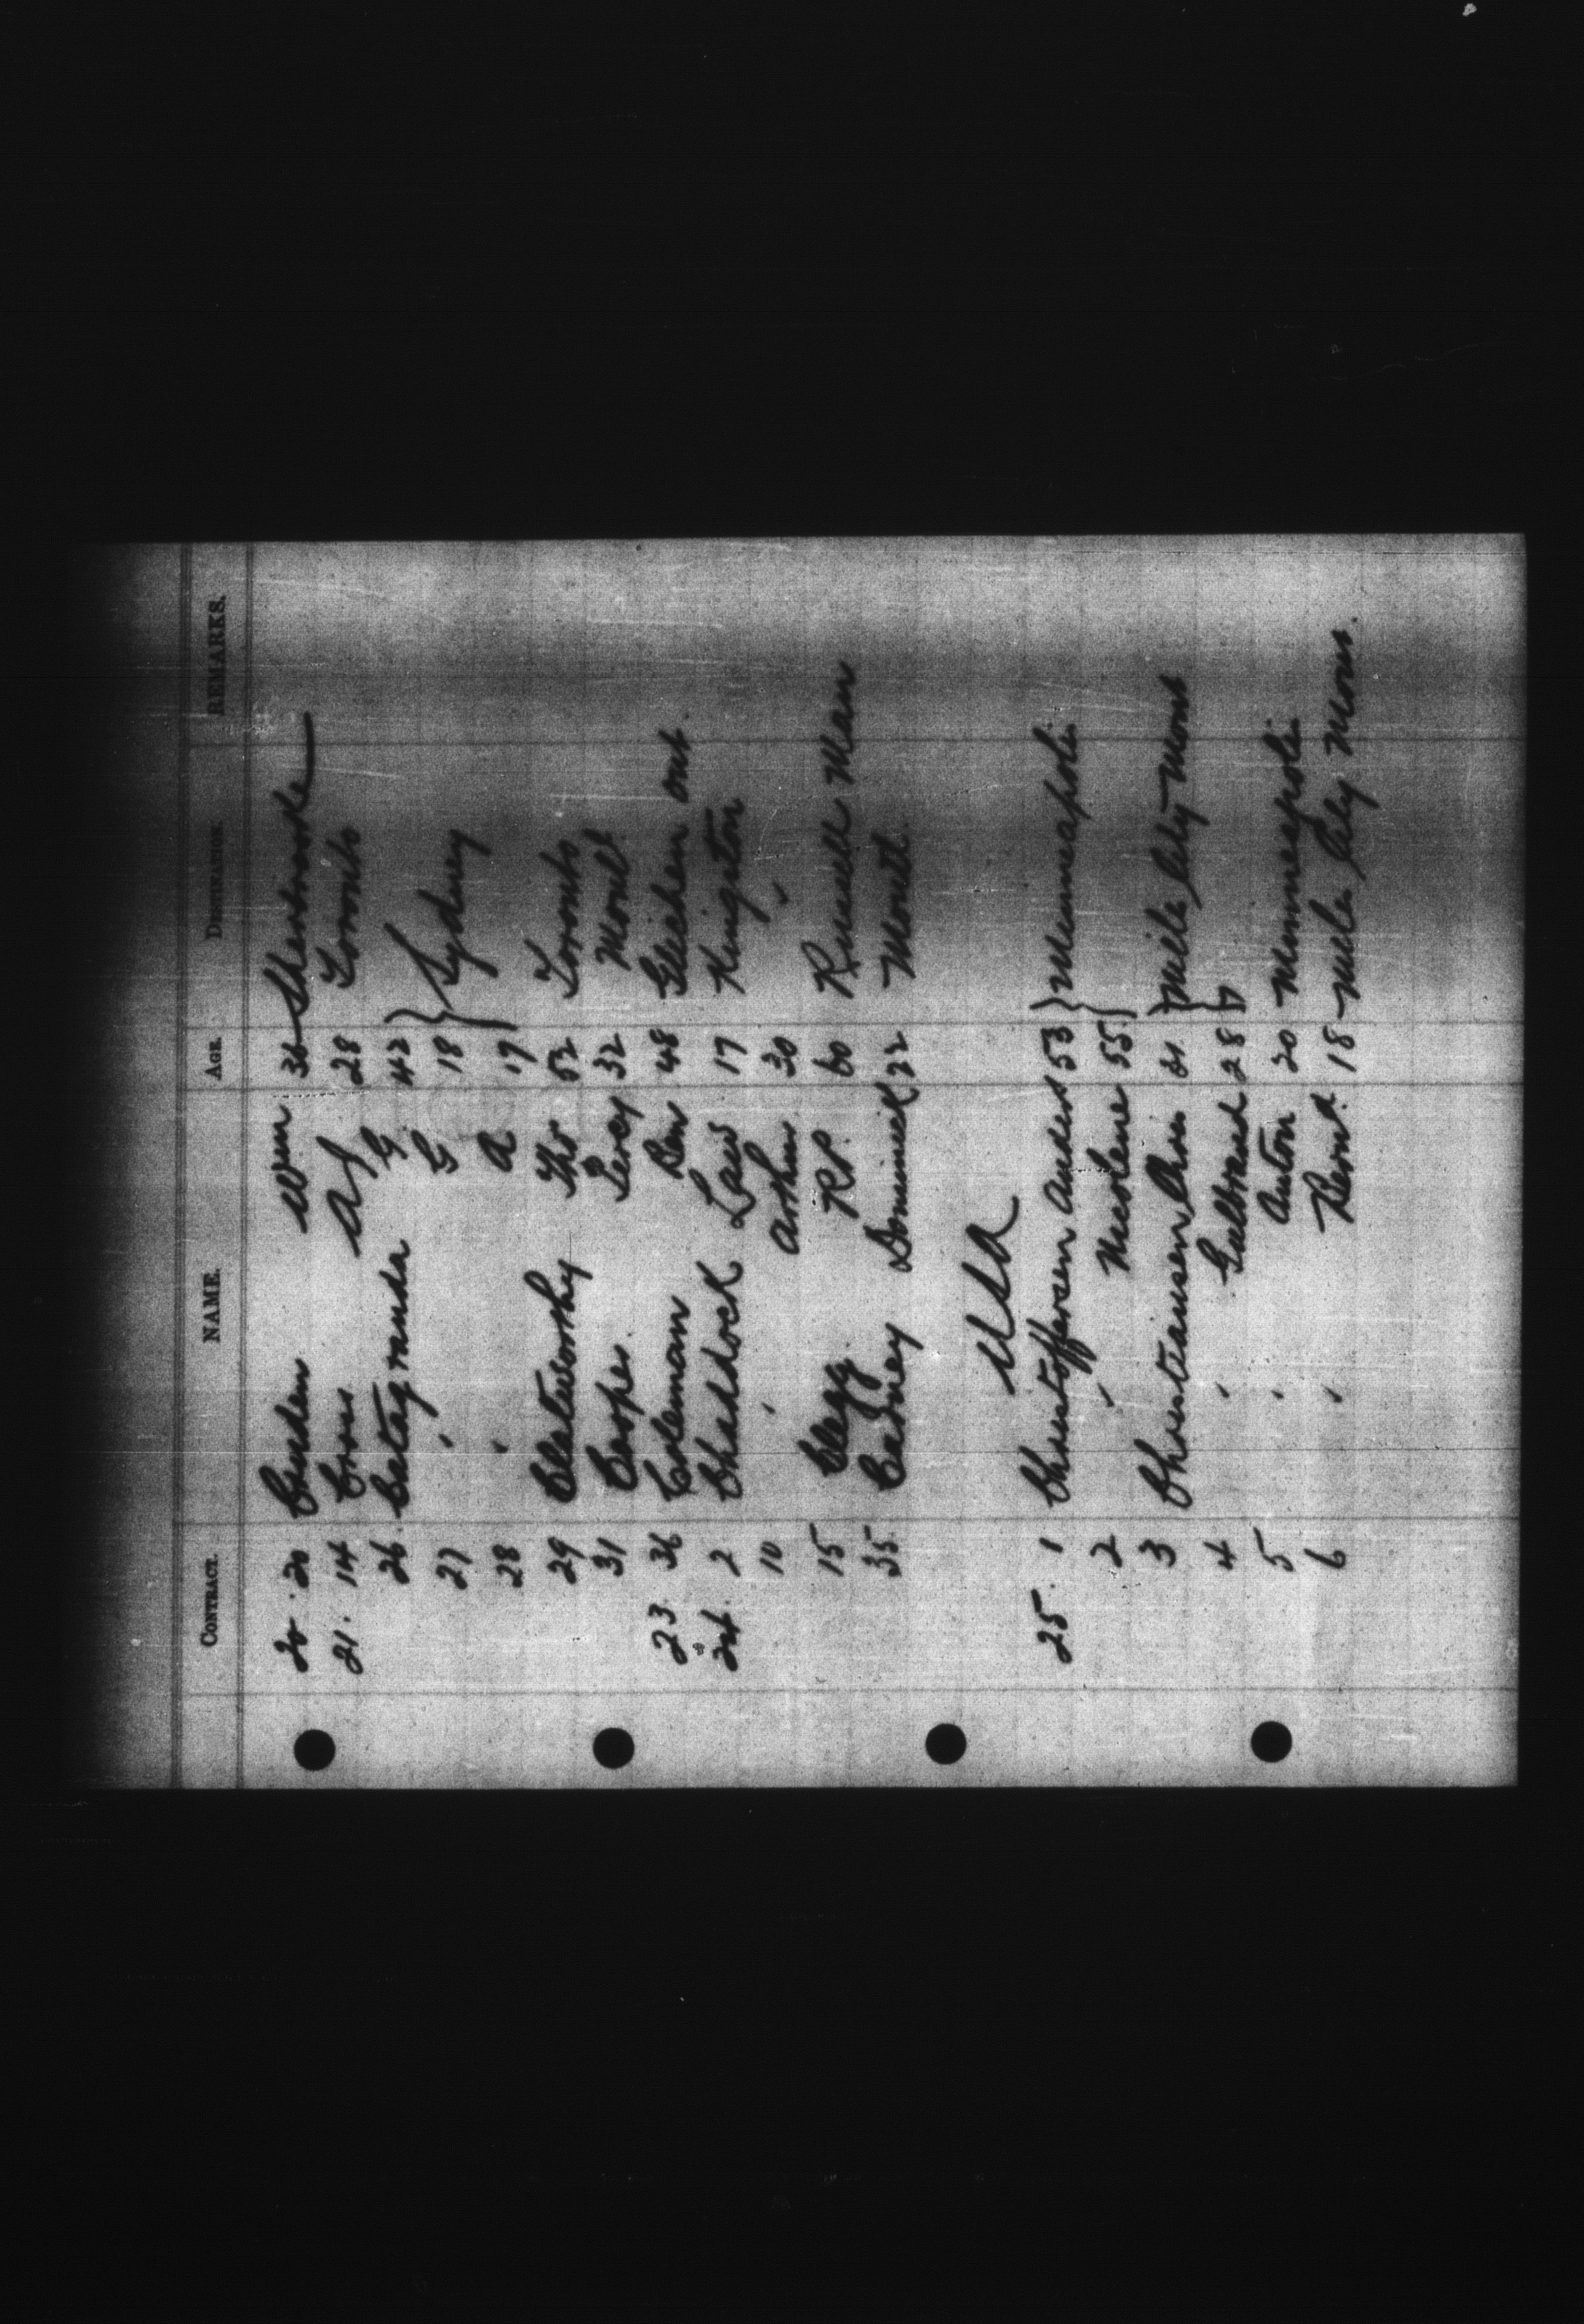 CONTRACT. NAME. AGE. DESTINATION. REMARKS.
20 20 Wm Sherbrooke
21. 14 Cross Alf 28 Toronto
26 Castagranda G 42
27 " G 18 } Sydney
28 " A 17
29 Clatworthy Tho 52 Toronto
31 Cooper Percy 32 Montl
23 36 Coleman Ben 48 Gleichen Ont
24 2 Chaddock Law 17 Kingston
10 " Arthur 30 "
15 Clegg RP 60 Russell Man
35 Cadney Dominick 22 Montl
USA
25. 1 Christoffersen Anders 53 } Minneapolis
2 " Nicolene 55
3 Christiansen 21 } Mile City Mont
4 " Gulbrand 28
5 " Anton 20 Minneapolis
6 " 18 Mile City Mon.